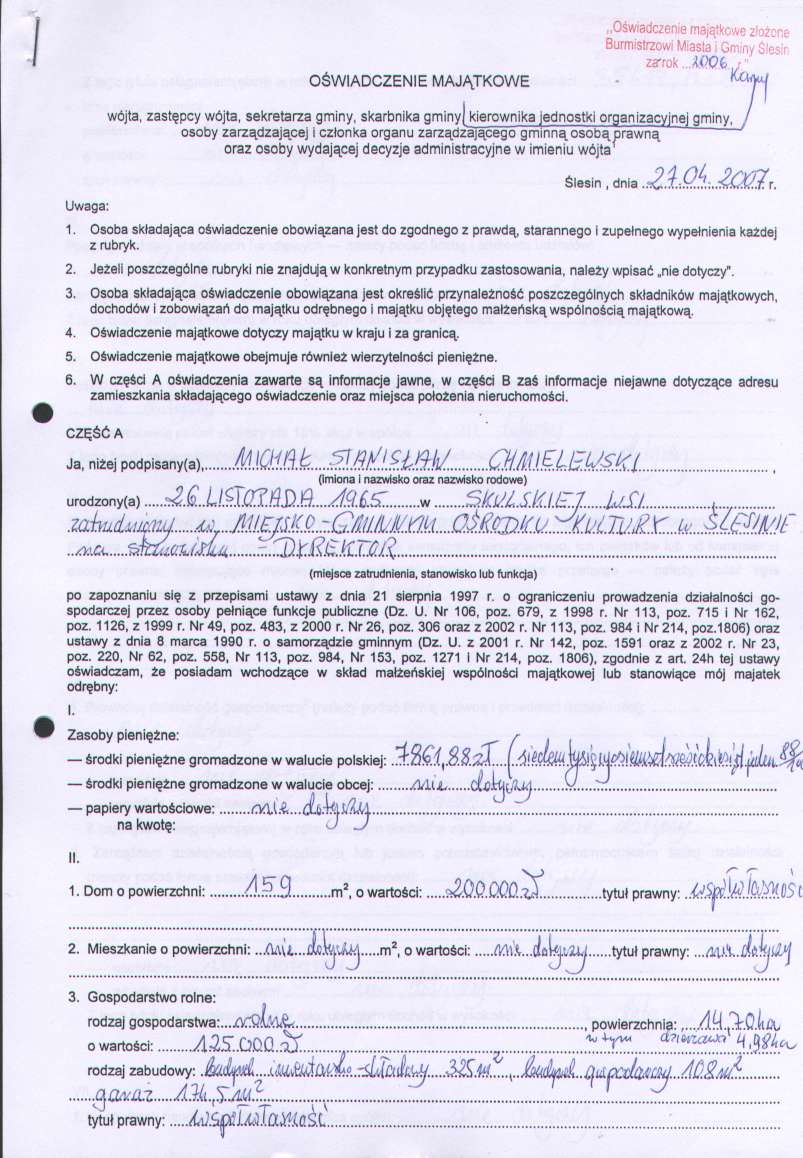 „Oświadczenie majątkowe złożone
Burmistrzowi Miasta i Gminy Ślesin
za rok ...2006 r."
OŚWIADCZENIE MAJĄTKOWE
wójta, zastępcy wójta, sekretarza gminy, skarbnika gminy, kierownika jednostki organizacyjnej gminy,
osoby zarządzającej i członka organu zarządzającego gminną osobą prawną
oraz osoby wydającej decyzje administracyjne w imieniu wójta¹
Ślesin , dnia ..27.04.2007. r.
Uwaga:
1. Osoba składająca oświadczenie obowiązana jest do zgodnego z prawdą, starannego i zupełnego wypełnienia każdej
z rubryk.
2. Jeżeli poszczególne rubryki nie znajdują w konkretnym przypadku zastosowania, należy wpisać „nie dotyczy".
3. Osoba składająca oświadczenie obowiązana jest określić przynależność poszczególnych składników majątkowych,
dochodów i zobowiązań do majątku odrębnego i majątku objętego małżeńską wspólnością majątkową.
4. Oświadczenie majątkowe dotyczy majątku w kraju i za granicą.
5. Oświadczenie majątkowe obejmuje również wierzytelności pieniężne.
6. W części A oświadczenia zawarte są informacje jawne, w części B zaś informacje niejawne dotyczące adresu
zamieszkania składającego oświadczenie oraz miejsca położenia nieruchomości.
CZĘŚĆ A
Ja, niżej podpisany(a),...... MICHAŁ STANISŁAW CHMIELEWSKI ......,
(imiona i nazwisko oraz nazwisko rodowe)
urodzony(a) ...... 26 LISTOPADA 1965 ...... w ...... SKULSKIEJ WSI ......,
zatrudniony w MIEJSKO-GMINNYM OŚRODKU KULTURY w ŚLESINIE
na stanowisku - DYREKTOR
(miejsce zatrudnienia, stanowisko lub funkcja)
po zapoznaniu się z przepisami ustawy z dnia 21 sierpnia 1997 r. o ograniczeniu prowadzenia działalności go-
spodarczej przez osoby pełniące funkcje publiczne (Dz. U. Nr 106, poz. 679, z 1998 r. Nr 113, poz. 715 i Nr 162,
poz. 1126, z 1999 r. Nr 49, poz. 483, z 2000 r. Nr 26, poz. 306 oraz z 2002 r. Nr 113, poz. 984 i Nr 214, poz.1806) oraz
ustawy z dnia 8 marca 1990 r. o samorządzie gminnym (Dz. U. z 2001 r. Nr 142, poz. 1591 oraz z 2002 r. Nr 23,
poz. 220, Nr 62, poz. 558, Nr 113, poz. 984, Nr 153, poz. 1271 i Nr 214, poz. 1806), zgodnie z art. 24h tej ustawy
oświadczam, że posiadam wchodzące w skład małżeńskiej wspólności majątkowej lub stanowiące mój majatek
odrębny:
I.
Zasoby pieniężne:
— środki pieniężne gromadzone w walucie polskiej: ..7861,88 zł (siedem tysięcy osiemset sześćdziesiąt jeden 88/100
— środki pieniężne gromadzone w walucie obcej: ...... nie dotyczy ......
— papiery wartościowe: ...... nie dotyczy ......
na kwotę:
II.
1. Dom o powierzchni: ...... 159 ......m², o wartości: ...... 200.000 zł ......tytuł prawny: współwłasność
2. Mieszkanie o powierzchni: ..nie dotyczy.....m², o wartości: ......nie dotyczy......tytuł prawny: ...nie dotyczy
3. Gospodarstwo rolne:
rodzaj gospodarstwa:...rolne......, powierzchnia: ....14,70 ha
w tym dzierżawa 4,98 ha
o wartości: ...... 125.000 zł ......
rodzaj zabudowy: .budynek inwentarsko-składowy 325 m², budynek gospodarczy 108 m²
garaż 174,5 m²
tytuł prawny: ....współwłasność